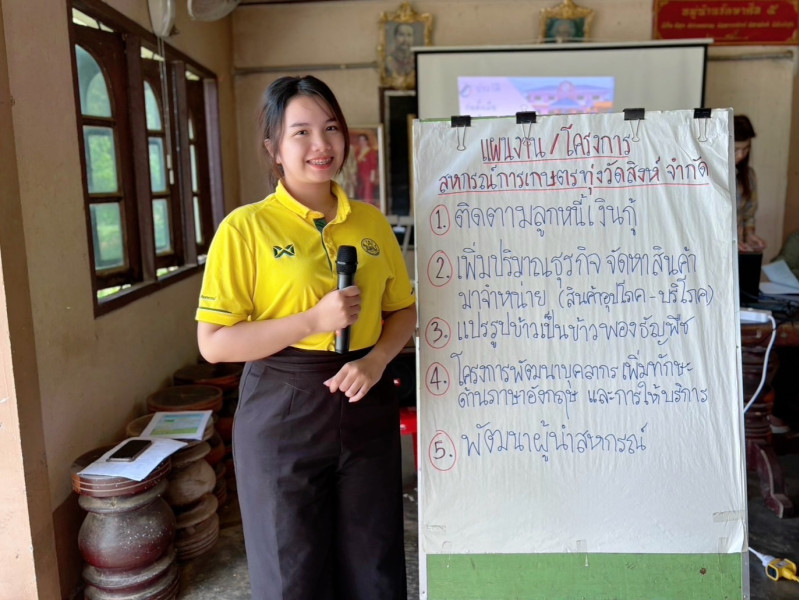 แผนงาน/โครงการ
สหกรณ์การเกษตรทุ่งวัดสิงห์ จำกัด
1. ติดตามลูกหนี้เงินกู้
2. เพิ่มปริมาณธุรกิจ จัดหาสินค้า
มาจำหน่าย (สินค้าอุปโภค-บริโภค)
3. แปรรูปข้าวเป็นข้าวพองธัญพืช
4. โครงการพัฒนาบุคลากร เพิ่มทักษะ
ด้านภาษาอังกฤษ และการให้บริการ
5. พัฒนาผู้นำสหกรณ์